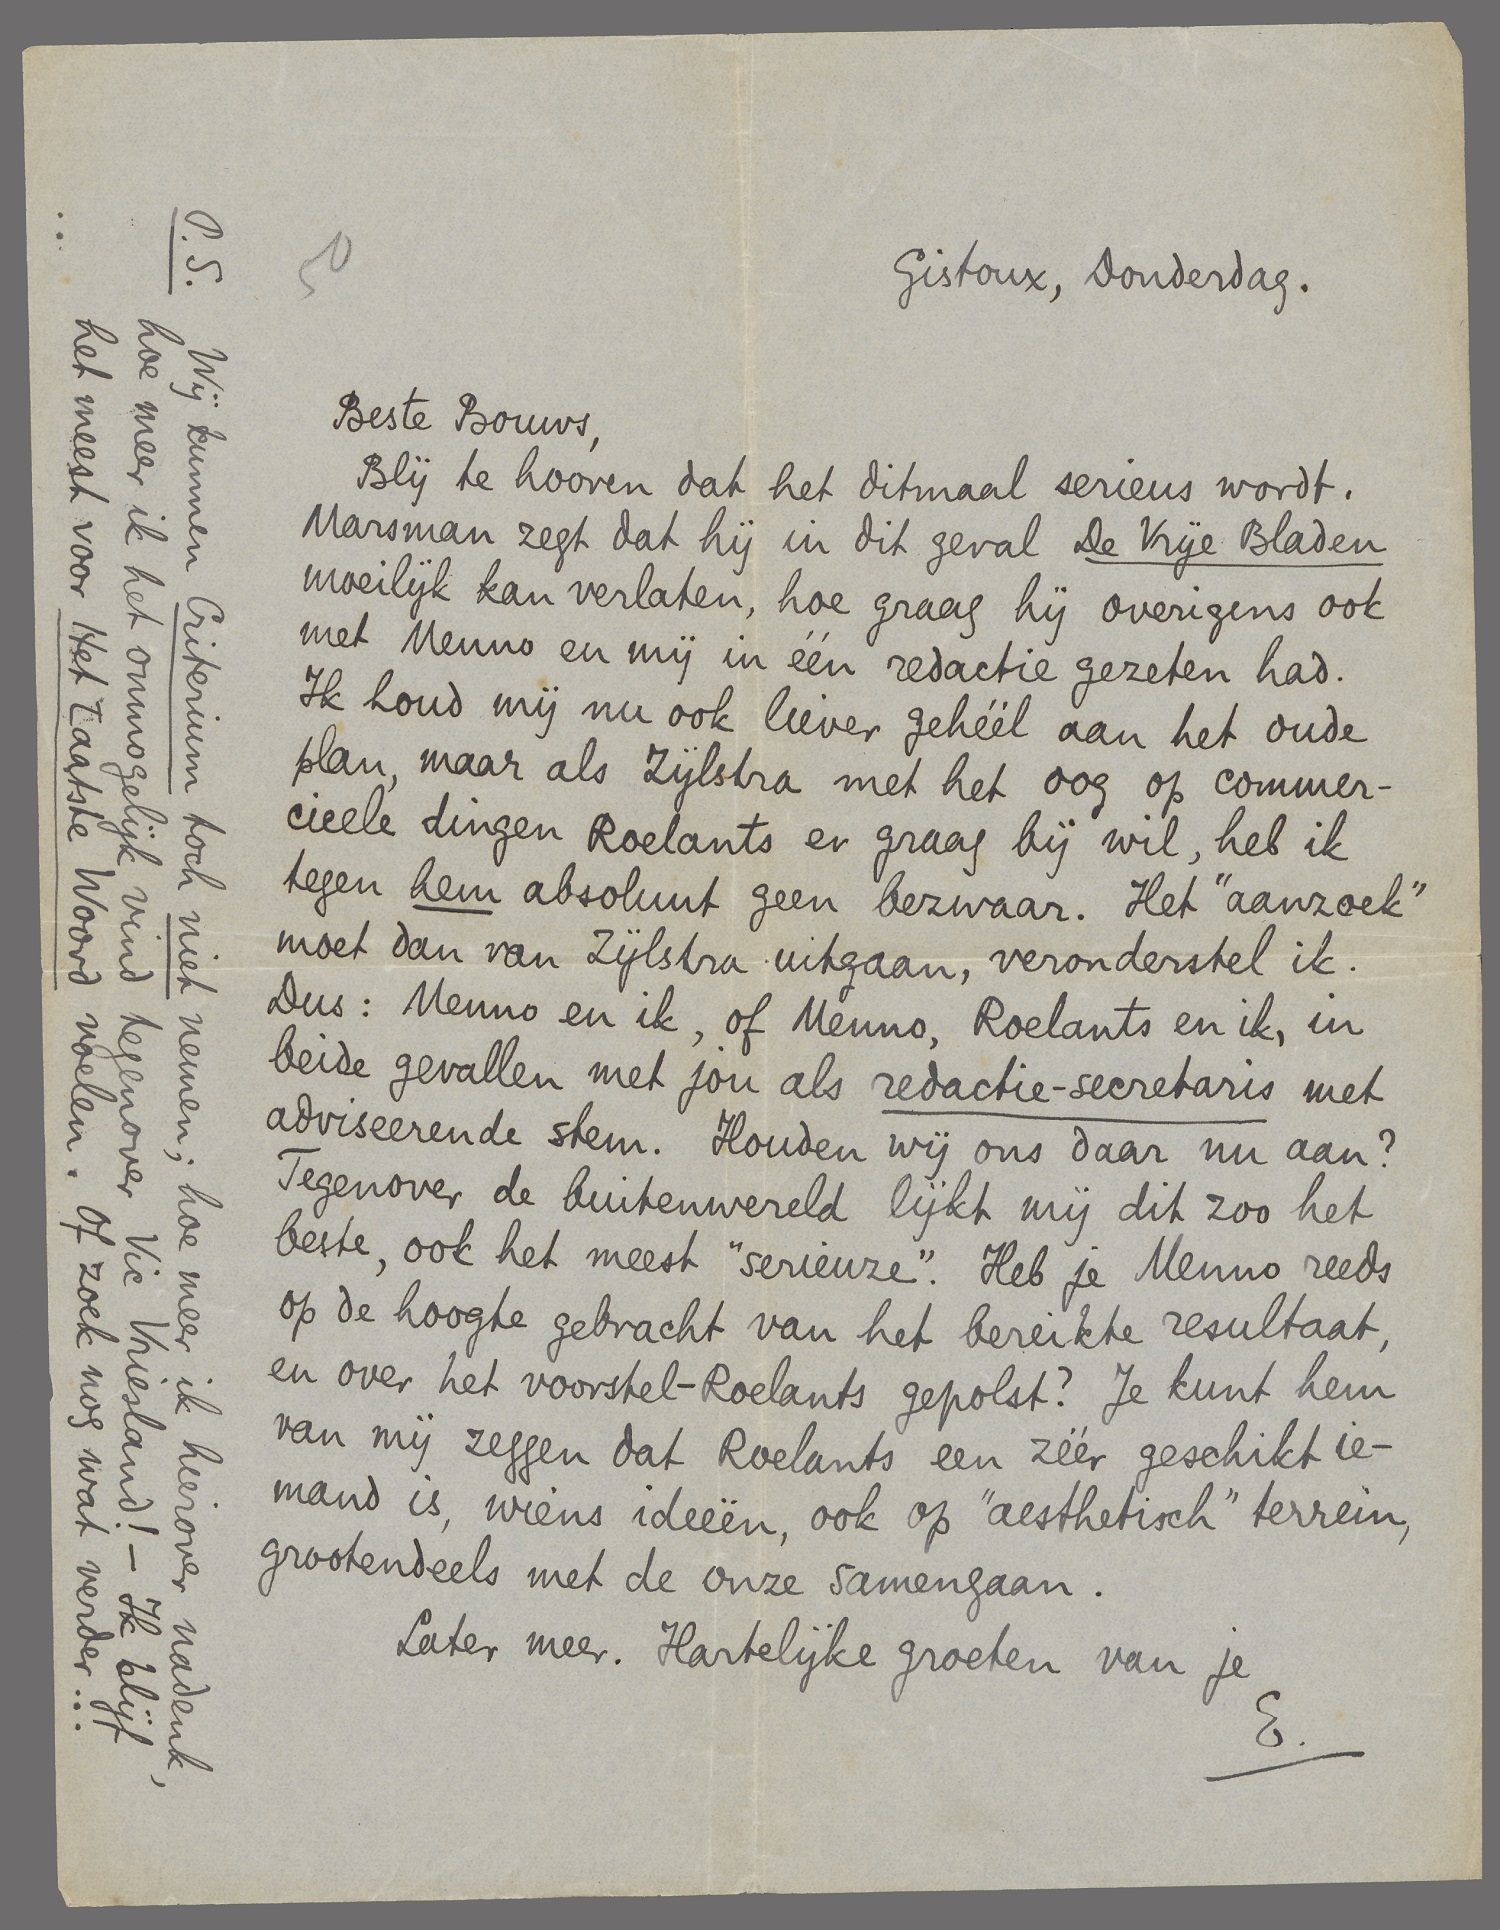 Gistoux, Donderdag.
Beste Bouws,
Blij te hooren dat het ditmaal serieus wordt.
Marsman zegt dat hij in dit geval De Vrije Bladen
moeilijk kan verlaten, hoe graag hij overigens ook
met Menno en mij in één redactie gezeten had.
Ik houd mij nu ook liever gehéél aan het oude
plan, maar als Zijlstra met het oog op commer-
cieele dingen Roelants er graag bij wil, heb ik
tegen hem absoluut geen bezwaar. Het "aanzoek"
moet dan van Zijlstra uitgaan, veronderstel ik.
Dus: Menno en ik, of Menno, Roelants en ik, in
beide gevallen met jou als redactie-secretaris met
adviseerende stem. Houden wij ons daar nu aan?
Tegenover de buitenwereld lijkt mij dit zoo het
beste, ook het meest "serieuze". Heb je Menno reeds
op de hoogte gebracht van het bereikte resultaat,
en over het voorstel-Roelants gepolst? Je kunt hem
van mij zeggen dat Roelants een zéér geschikt ie-
mand is, wiens ideeën, ook op "aesthetisch" terrein,
grootendeels met de onze samengaan.
Later meer. Hartelijke groeten van je
E.
P.S. Wij kunnen Criterium toch niet nemen; hoe meer ik hierover nadenk,
hoe meer ik het onmogelijk vind tegenover Vic Vriesland! – Ik blijf
het meest voor Het Laatste Woord voelen. Of zoek nog wat verder...